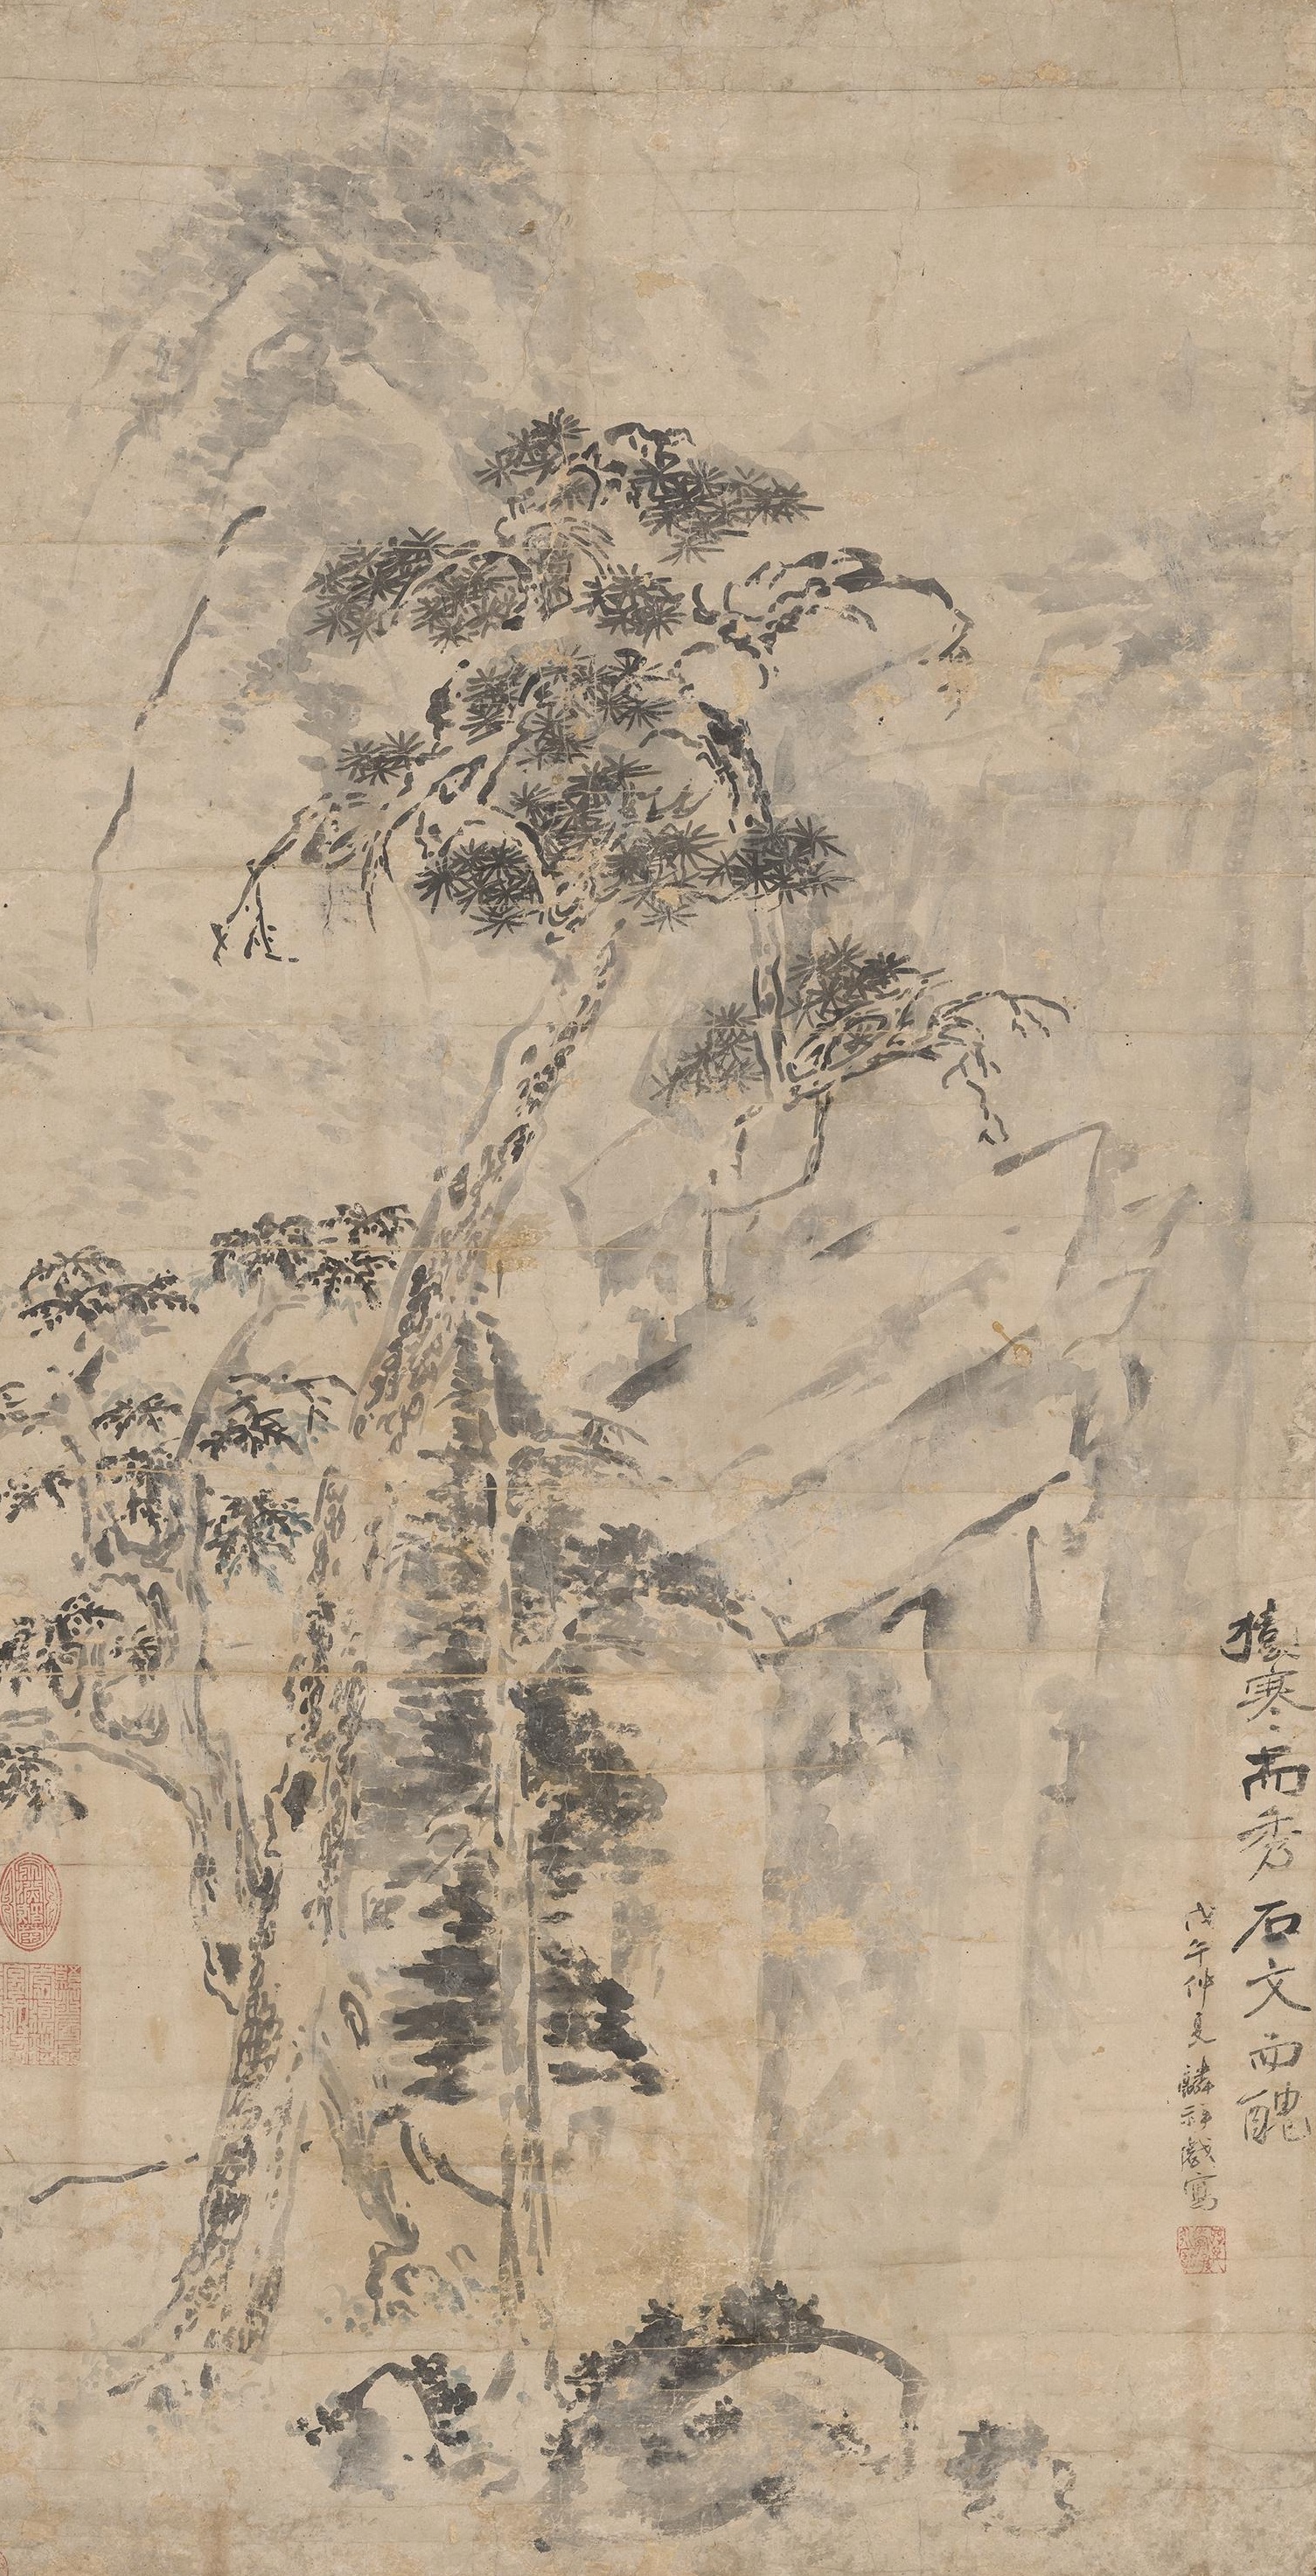 樹寒而秀石文而醜
戊午仲夏麟祥戲寫